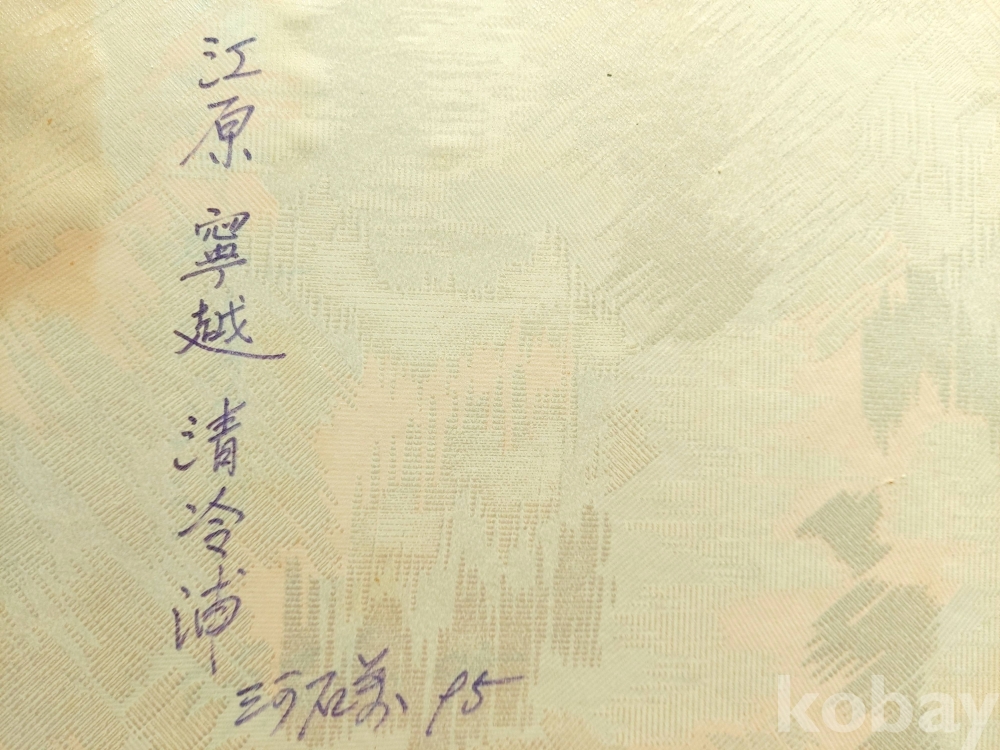 江原 寧越 清冷浦
河石 95
kobay